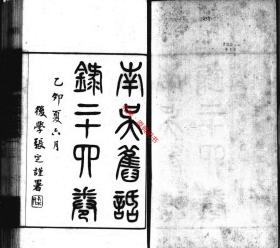 南吳舊話
錄二十四卷
乙卯夏六月
後學張定謹署